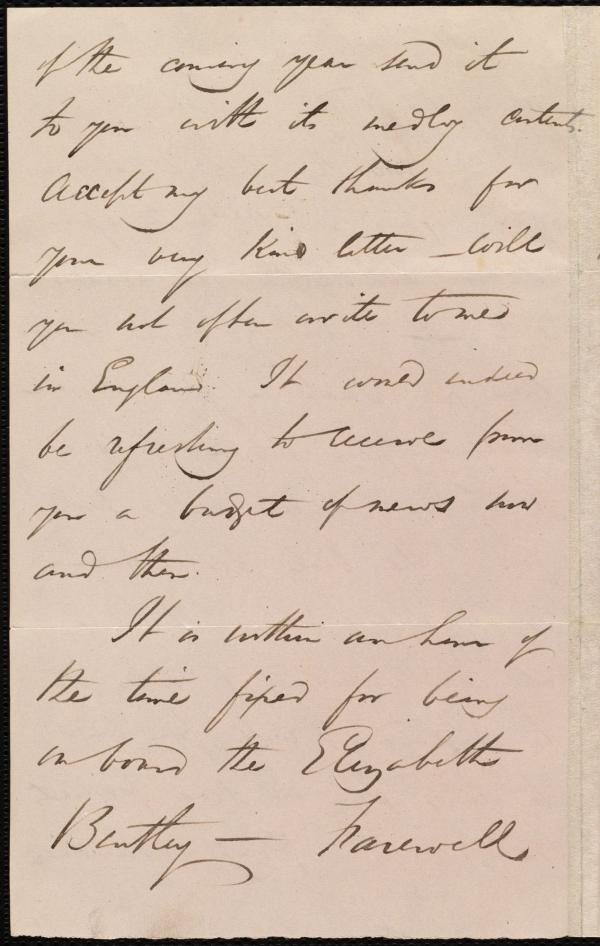 of the coming year send it
to you with its medley contents.
Accept my best thanks for
your very kind letter – Will
you not often write to me
in England. It would indeed
be refreshing to receive from
you a budget of news now
and then.
It is within an hour of
the time fixed for being
on board the Elizabeth
Bentley — Farewell,